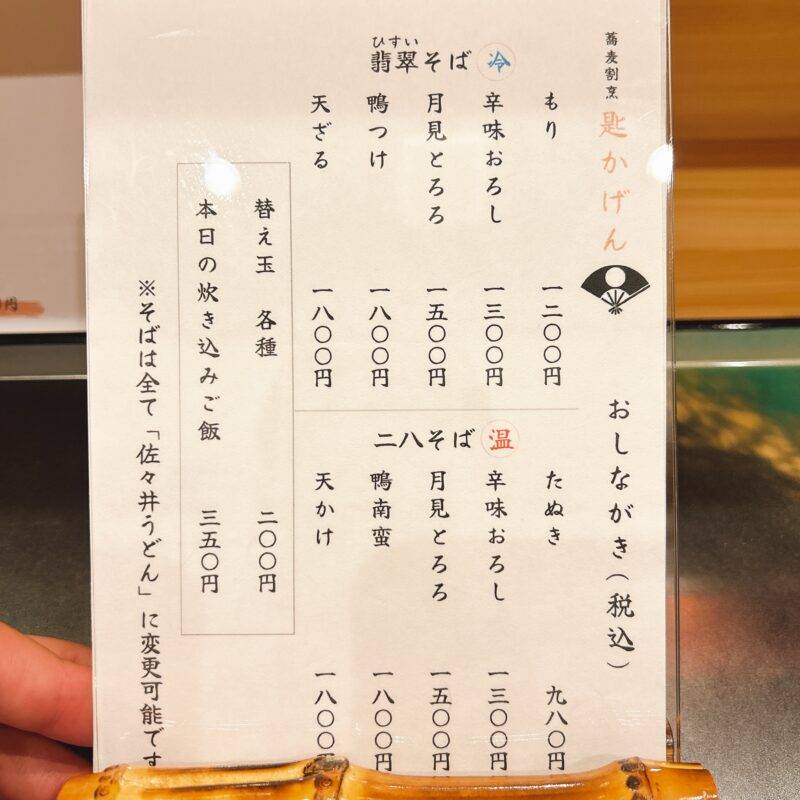 蕎麦割烹
匙かげん
おしながき(税込)
ひすい
翡翠そば 冷
もり 一二〇〇円
辛味おろし 一三〇〇円
月見とろろ 一五〇〇円
鴨つけ 一八〇〇円
天ざる 一八〇〇円
二八そば 温
たぬき 九八〇円
辛味おろし 一三〇〇円
月見とろろ 一五〇〇円
鴨南蛮 一八〇〇円
天かけ 一八〇〇円
替え玉 各種 二〇〇円
本日の炊き込みご飯 三五〇円
※そばは全て「佐々井うどん」に変更可能です
円